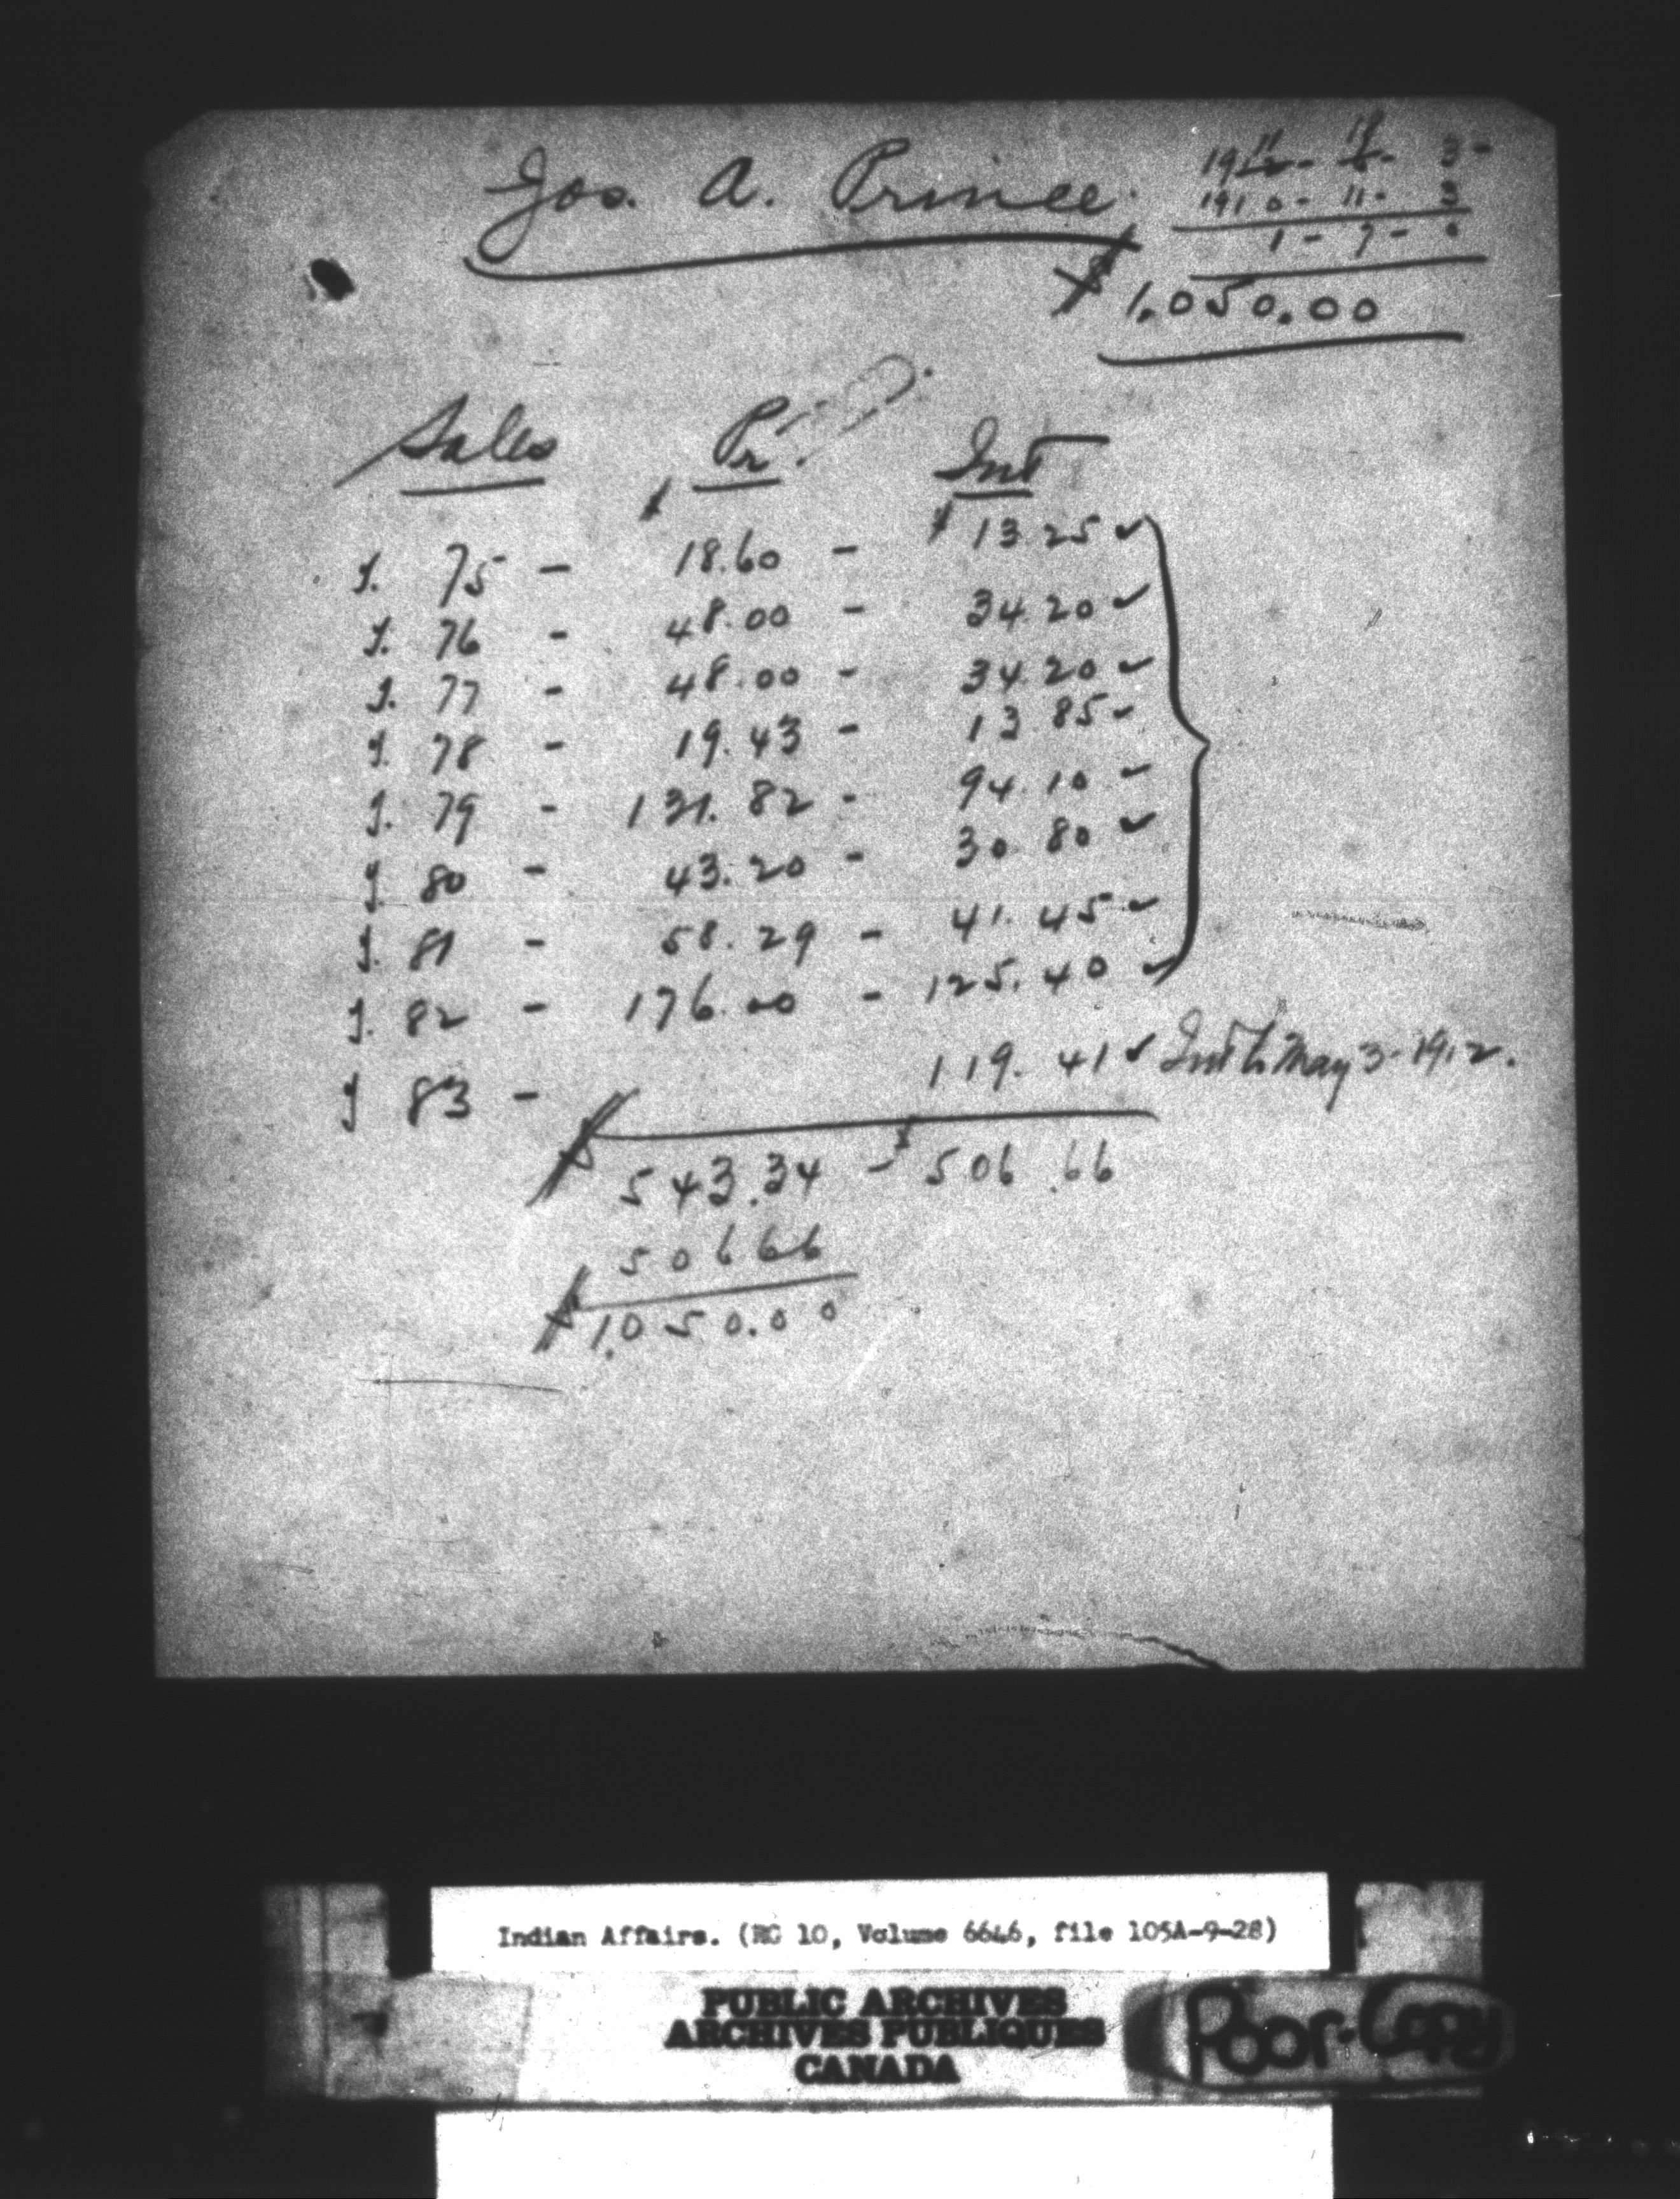 Jos. A. Prince.
11 18
1912 - 6 - 3 -
1910 - 11 - 3
1 - 7 - 0
$1,050.00
Sales Pr. Int
J. 75 - $18.60 - $13.25 ✓
J. 76 - 48.00 - 34.20 ✓
J. 77 - 48.00 - 34.20 ✓
J. 78 - 19.43 - 13.85 ✓
J. 79 - 131.82 - 94.10 ✓
J. 80 - 43.20 - 30.80 ✓
J. 81 - 58.29 - 41.45 ✓
J. 82 - 176.00 - 125.40 ✓
J 83 - 119.41 ✓ Int to May 3 - 1912.
$543.34 - $506.66
506 66
$1,050.00
Indian Affairs. (RG 10, Volume 6646, file 105A-9-28)
PUBLIC ARCHIVES
ARCHIVES PUBLIQUES
CANADA
Poor-Copy